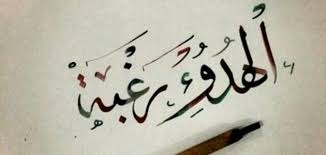 الهدوءُ رغبة